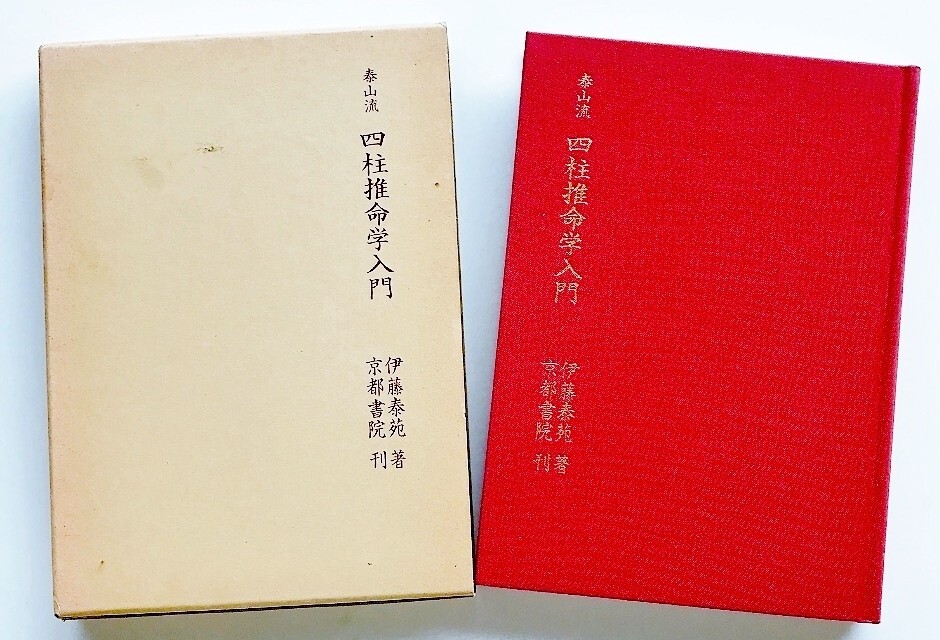 泰山流
四柱推命学入門
伊藤泰苑 著
京都書院 刊
泰山流
四柱推命学入門
伊藤泰苑 著
京都書院 刊